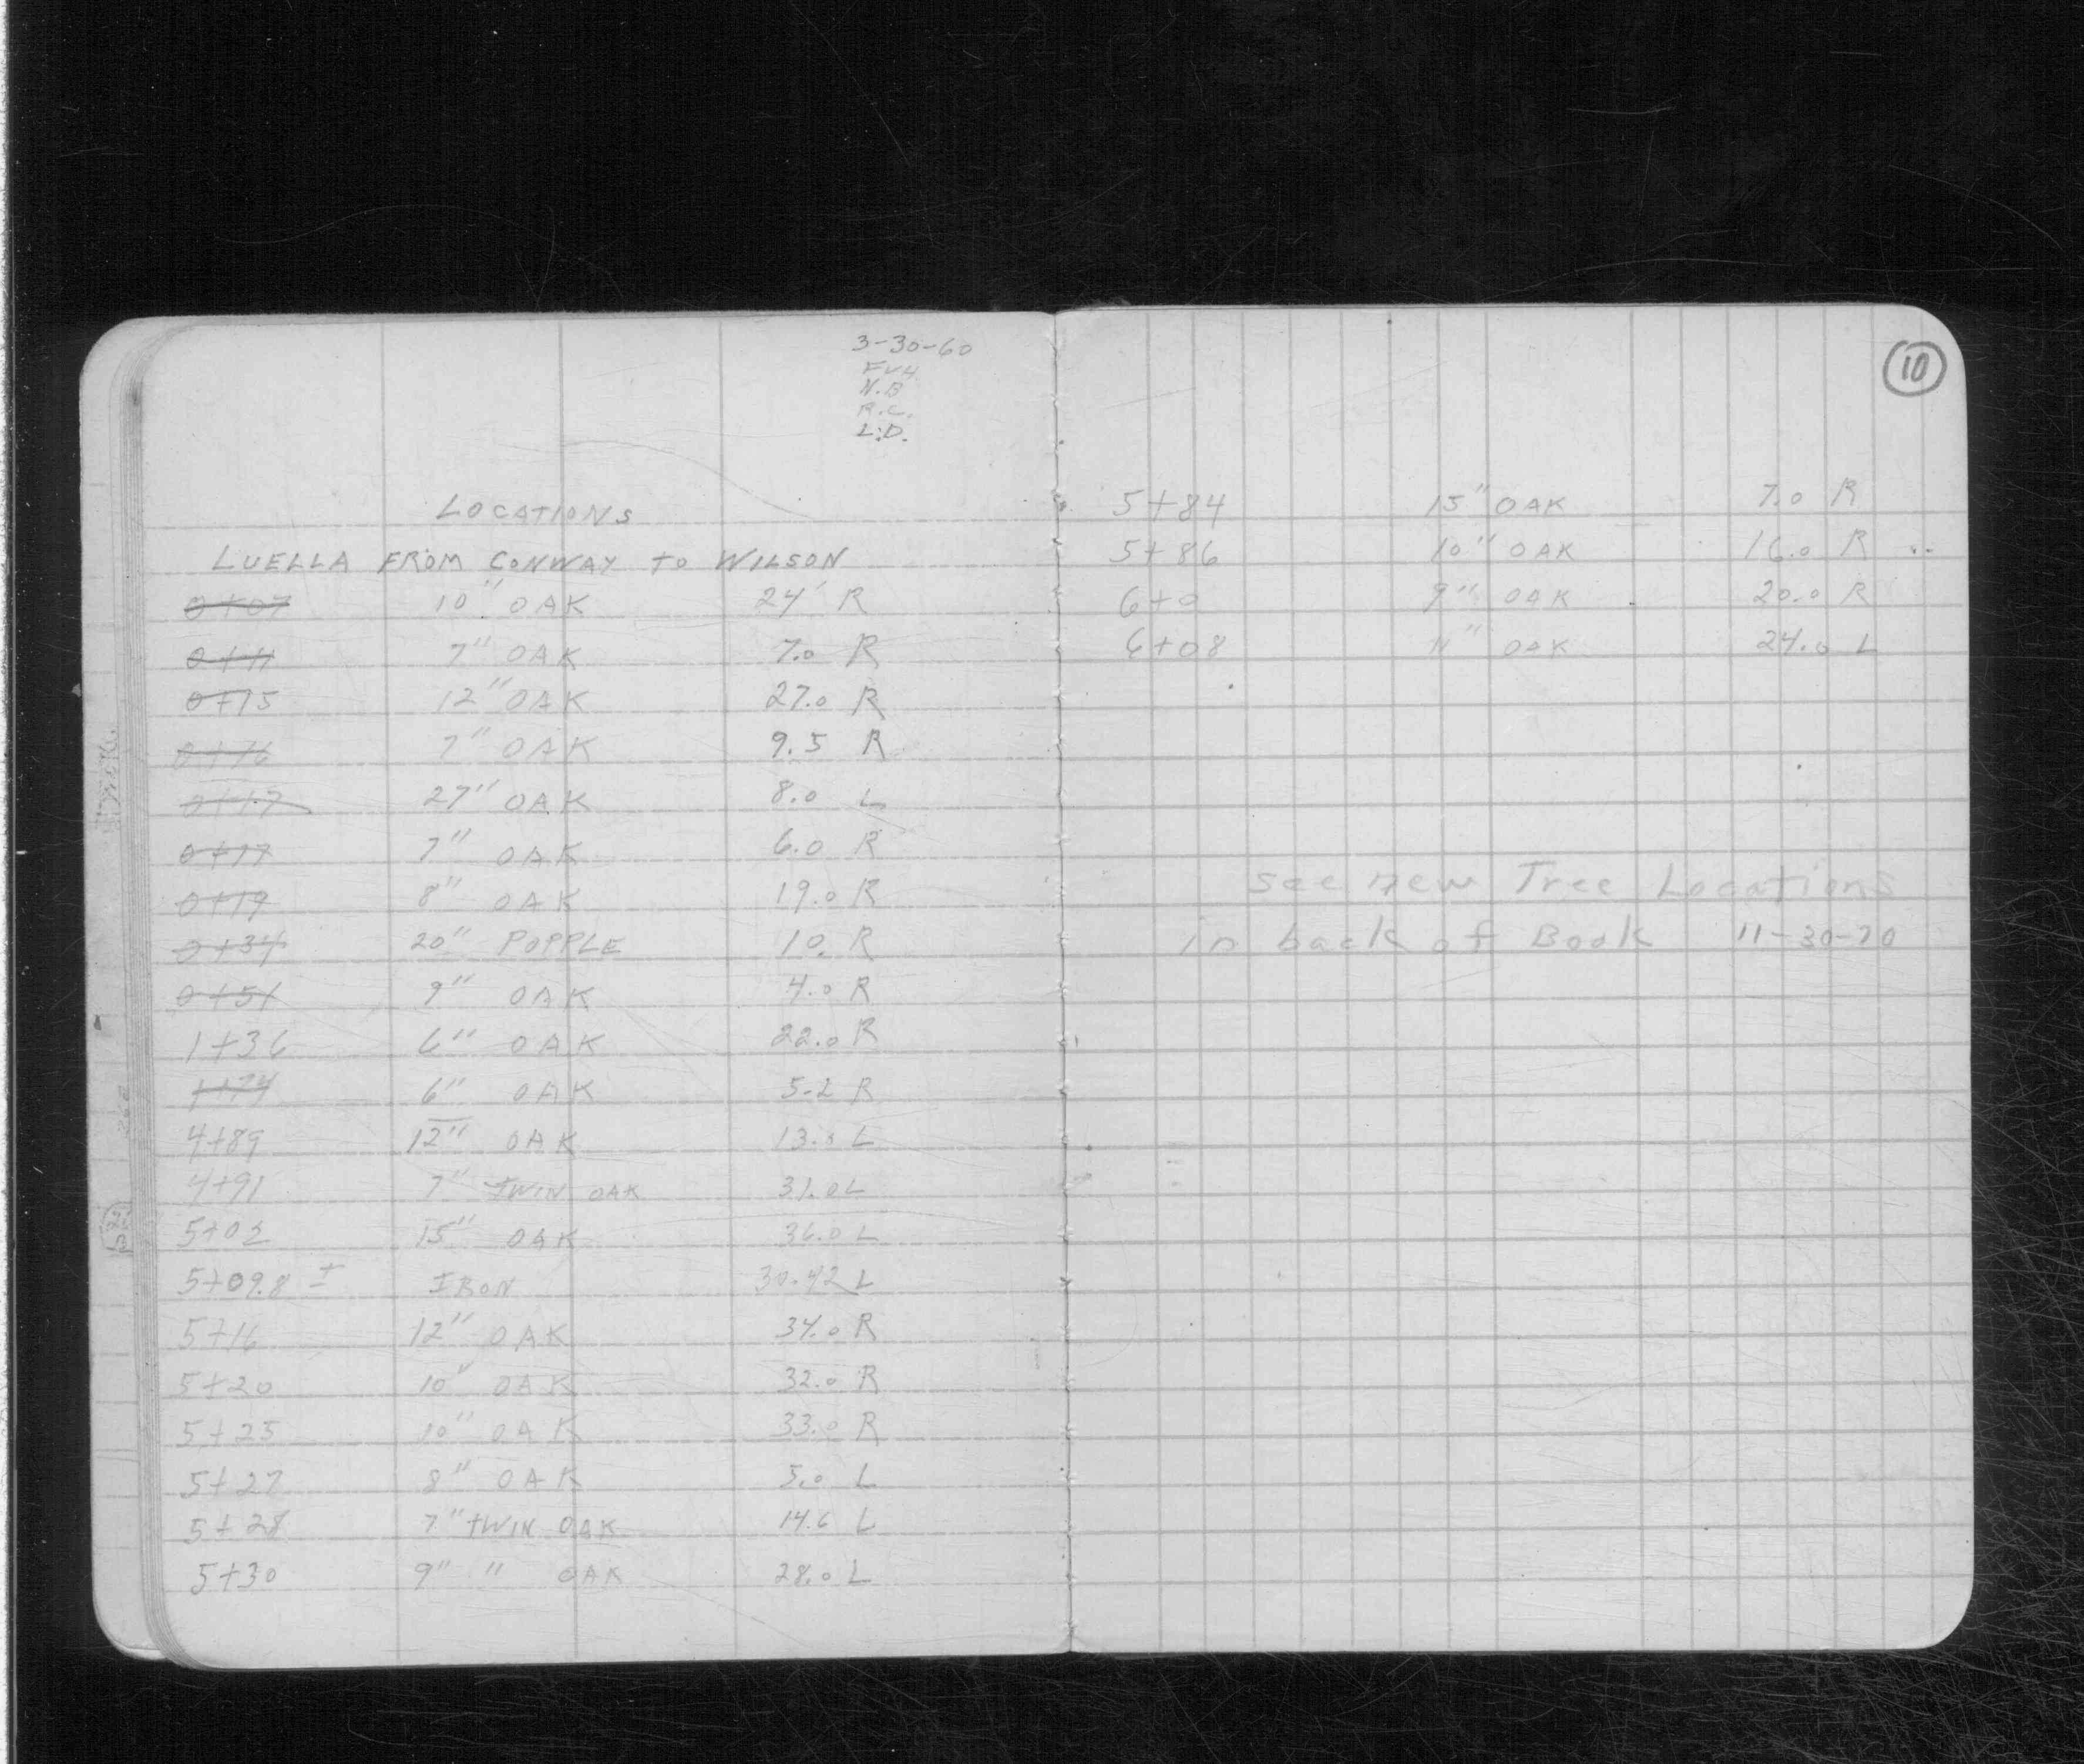 3-30-60
FVH
N.B
R.C.
L.D.
LOCATIONS
LUELLA FROM CONWAY TO WILSON
0+07 10" OAK 24' R
0+11 7" OAK 7.0 R
0+75 12" OAK 27.0 R
0+76 7" OAK 9.5 R
0+17 27" OAK 8.0 L
0+17 7" OAK 6.0 R
0+19 8" OAK 19.0 R
0+34 20" POPPLE 10. R
0+51 9" OAK 4.0 R
1+36 6" OAK 22.0 R
1+74 6" OAK 5.2 R
4+89 12" OAK 13.0 L
4+91 7" TWIN OAK 31.0 L
5+02 15" OAK 36.0 L
5+09.8 ± IRON 30.42 L
5+16 12" OAK 34.0 R
5+20 10" OAK 32.0 R
5+25 10" OAK 33.0 R
5+27 8" OAK 5.0 L
5+28 7" TWIN OAK 14.6 L
5+30 9" " OAK 28.0 L
10
5+84 15" OAK 7.0 R
5+86 10" OAK 16.0 R
6+0 9" OAK 20.0 R
6+08 11" OAK 24.0 L
See new Tree Locations
in back of Book 11-30-70